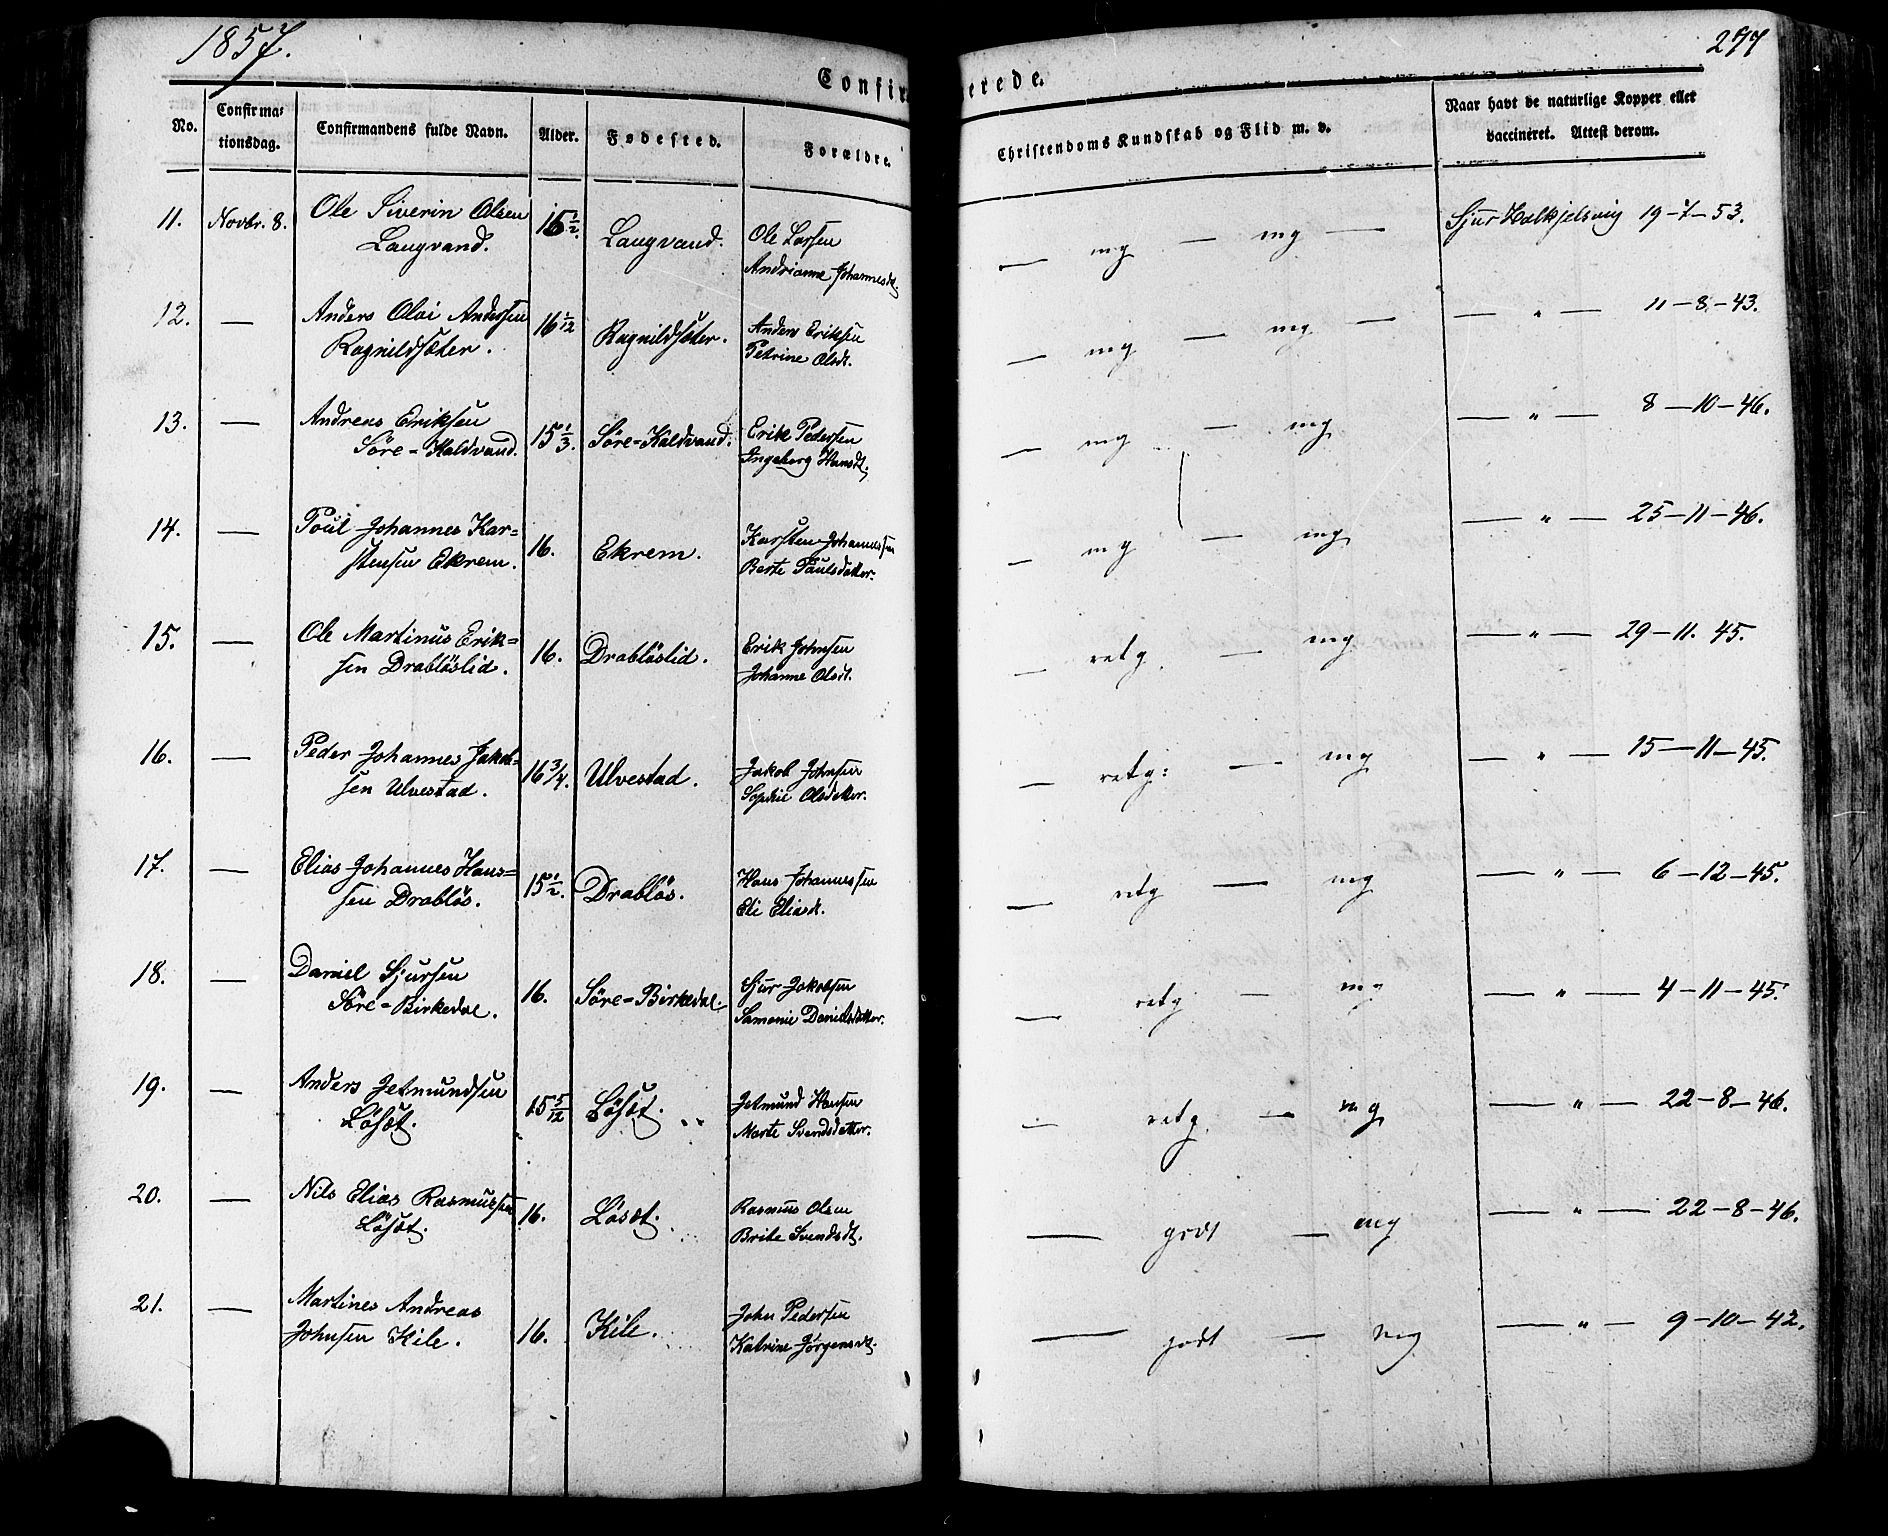 1857.
277
Confirmerede.
No. Confirmationsdag. Confirmandens fulde Navn. Alder. Fødested. Forældre. Christendoms Kundskab og Flid m. v. Naar havt de naturlige Kopper eller vaccineret. Attest derom.
11. Novbr. 8. Ole Siverin Olsen 16 1/2. Langvand. Ole Larsen — mg — mg — Sjur Halkjelsvig 19-7-53.
Langvand. Andrianne Johannesdt.
12. — Anders Oloi Andersen 16 1/12 Ragnildsæter. Anders Eriksen — mg — mg — — " — 11-8-43.
Ragnildsæter. Petrine Olsdt.
13. — Andreas Eriksen 15 1/3. Søre-Kaldvand. Erik Pedersen — mg — mg — " — 8-10-46.
Søre-Kaldvand. Ingeborg Hansdt.
14. — Poul Johannes Kar= 16. Ekrem. Karsten Johannessen — mg — mg — " — 25-11-46.
stensen Ekrem. Berte Paulsdatter.
15. — Ole Martinus Erik= 16. Drabløslid. Erik Johnsen — retg. — mg — " — 29-11.45.
sen Drabløslid. Johanne Olsdt.
16. — Peder Johannes Jakob- 16 3/4. Ulvestad. Jakob Johnsen — retg: — mg — " — 15-11-45.
sen Ulvestad. Sophie Olsdatter.
17. — Elias Johannes Hans= 15 1/2. Drabløs. Hans Johannessen — retg — mg — " — 6-12-45.
sen Drabløs. Eli Eliasdt.
18. — Daniel Sjursen 16. Søre-Birkedal. Sjur Jakobsen — retg — mg — " — 4-11-45.
Søre-Birkedal. Samonie Danielsdatter.
19. — Anders Jetmundsen 15 5/12 Løsæt. Jetmund Hansen — retg. — mg — " — 22-8-46.
Løsæt. Marte Svendsdatter.
20. — Nils Elias Rasmussen 16. Løsæt. Rasmus Olsen — godt — mg — " — 22-8-46.
Løsæt. Brite Svendsdt.
21. — Martines Andreas 16. Kile. John Pedersen — godt — mg — " — 9-10-42.
Johnsen Kile. Katrine Jørgensdt.